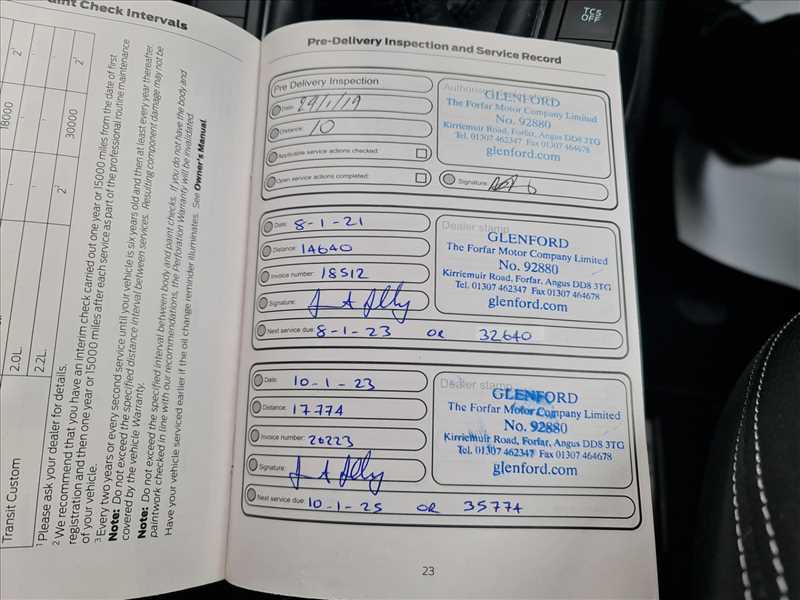 TCS
OFF
int Check Intervals
18000
2¹
30000
2¹
2¹
2.0L
2.2L
Transit Custom
¹ Please ask your dealer for details.
² We recommend that you have an interim check carried out one year or 15000 miles from the date of first
registration and then one year or 15000 miles after each service as part of the professional routine maintenance
of your vehicle.
³ Every two years or every second service until your vehicle is six years old and then at least every year thereafter.
Note: Do not exceed the specified distance interval between services. Resulting component damage may not be
covered by the vehicle Warranty.
Note: Do not exceed the specified interval between body and paint checks. If you do not have the body and
paintwork checked in line with our recommendations, the Perforation Warranty will be invalidated.
Have your vehicle serviced earlier if the oil change reminder illuminates. See Owner's Manual.
Pre-Delivery Inspection and Service Record
Pre Delivery Inspection
Date: 29/1/19
Distance: 10
Applicable service actions checked:
Open service actions completed:
GLENFORD
The Forfar Motor Company Limited
No. 92880
Kirriemuir Road, Forfar, Angus DD8 3TG
Tel. 01307 462347 Fax 01307 464678
glenford.com
Signature:
Date: 8-1-21
Distance: 14640
Invoice number: 18512
Signature:
Next service due: 8-1-23 OR 32640
Dealer stamp
GLENFORD
The Forfar Motor Company Limited
No. 92880
Kirriemuir Road, Forfar, Angus DD8 3TG
Tel. 01307 462347 Fax 01307 464678
glenford.com
Date: 10-1-23
Distance: 17774
Invoice number: 26223
Signature:
Next service due: 10-1-25 OR 35774
Dealer stamp
GLENFORD
The Forfar Motor Company Limited
No. 92880
Kirriemuir Road, Forfar, Angus DD8 3TG
Tel. 01307 462347 Fax 01307 464678
glenford.com
23